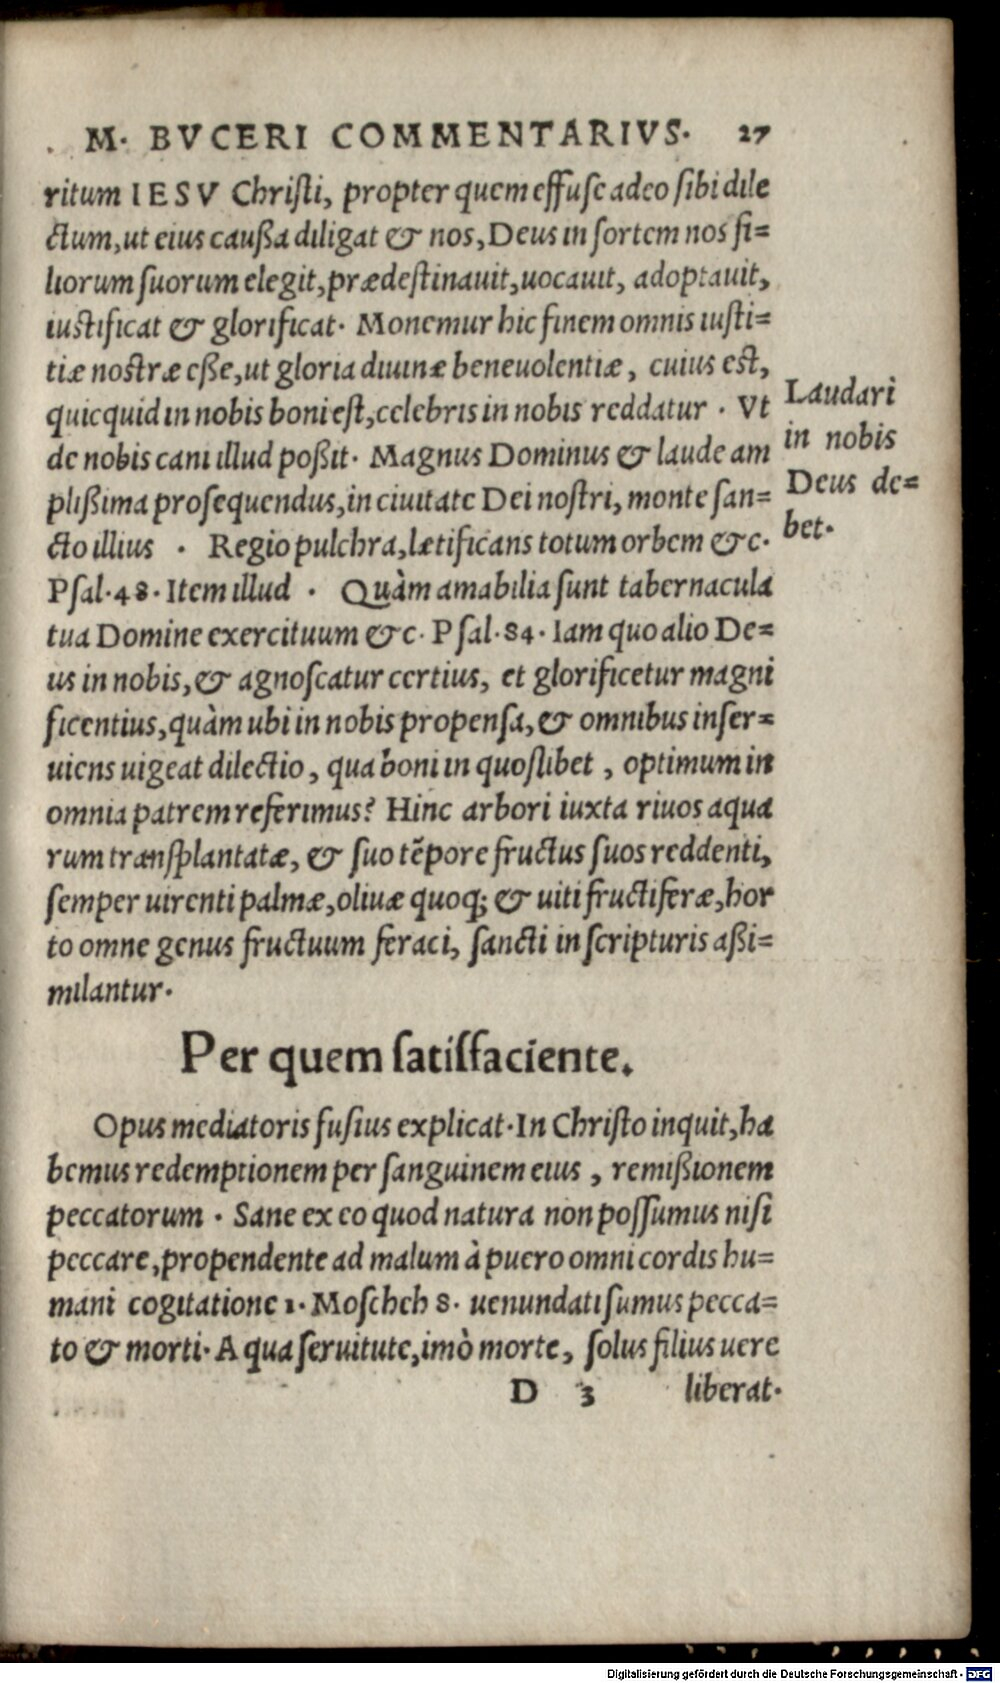 M. BVCERI COMMENTARIVS. 27
ritum IESV Christi, propter quem effuse adeo sibi dile
ctum, ut eius caußa diligat & nos, Deus in sortem nos fi=
liorum suorum elegit, prædestinauit, uocauit, adoptauit,
iustificat & glorificat. Monemur hic finem omnis iusti=
tiæ nostræ eße, ut gloria diuinæ beneuolentiæ, cuius est,
quicquid in nobis boni est, celebris in nobis reddatur. Vt
de nobis cani illud poßit. Magnus Dominus & laude am
plißima prosequendus, in ciuitate Dei nostri, monte san=
cto illius. Regio pulchra, lætificans totum orbem &c.
Psal. 48. Item illud. Quàm amabilia sunt tabernacula
tua Domine exercituum &c. Psal. 84. Iam quo alio De=
us in nobis, & agnoscatur certius, et glorificetur magni
ficentius, quàm ubi in nobis propensa, & omnibus inser=
uiens uigeat dilectio, qua boni in quoslibet, optimum in
omnia patrem referimus? Hinc arbori iuxta riuos aqua
rum transplantatæ, & suo tēpore fructus suos reddenti,
semper uirenti palmæ, oliuæ quoq; & uiti fructiferæ, hor
to omne genus fructuum feraci, sancti in scripturis aßi=
milantur.
Laudari
in nobis
Deus de=
bet.
Per quem satisfaciente.
Opus mediatoris fusius explicat. In Christo inquit, ha
bemus redemptionem per sanguinem eius, remißionem
peccatorum. Sane ex eo quod natura non possumus nisi
peccare, propendente ad malum à puero omni cordis hu=
mani cogitatione 1. Moscheh 8. uenundati sumus pecca=
to & morti. A qua seruitute, imò morte, solus filius uere
D 3 liberat.
Digitalisierung gefördert durch die Deutsche Forschungsgemeinschaft - DFG